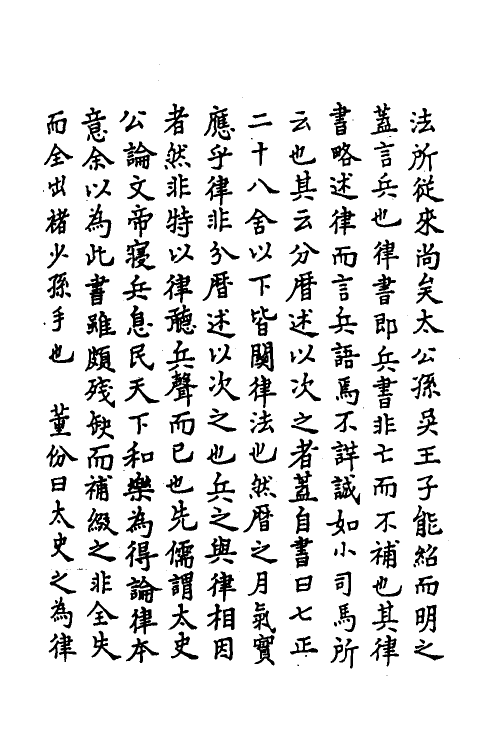 法所從來尚矣太公孫吳王子能紹而明之
蓋言兵也律書即兵書非亡而不補也其律
書略述律而言兵語焉不詳誠如小司馬所
云也其云分曆述以次之者蓋自書曰七正
二十八舍以下皆闗律法也然曆之月氣實
應乎律非分曆述以次之也兵之與律相因
者然非特以律聽兵聲而已也先儒謂太史
公論文帝寢兵息民天下和樂為得論律本
意余以為此書雖頗殘缺而補綴之非全失
而全出褚少孫手也　董份曰太史之為律